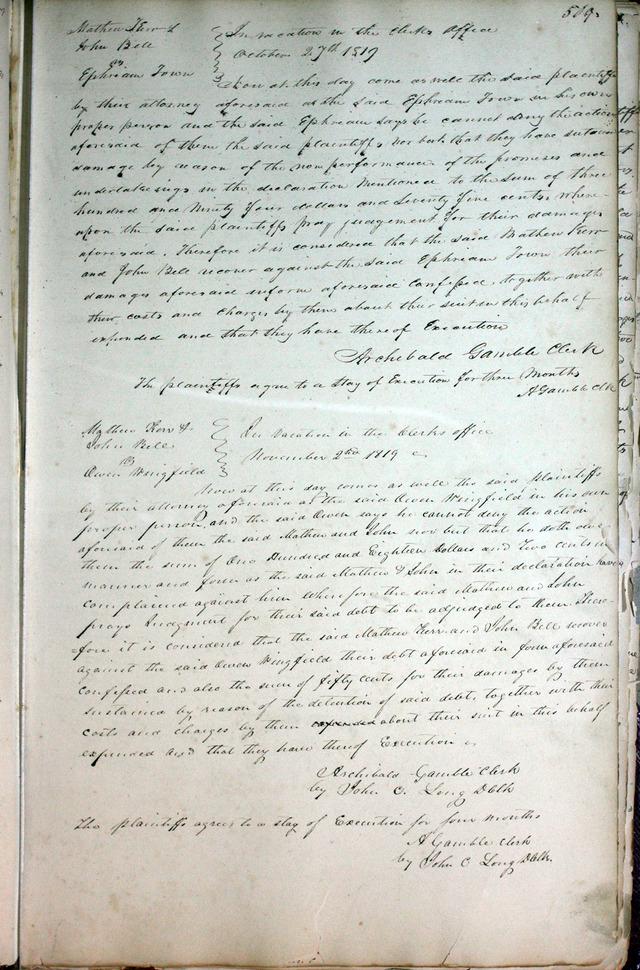 519.
Mathew Kerr &
John Bell
vs
Ephriam Town
In vacation in the Clerks Office
October 27th 1819
Now at this day come as well the said plaintiffs
by their attorney aforesaid as the said Ephriam Town in his own
proper person and the said Ephriam says he cannot deny the action
aforesaid of them the said plaintiffs nor but that they have sustained
damage by reason of the non performance of the promises and
undertakings in the declaration mentioned to the sum of three
hundred and Ninety four dollars and Seventy five cents where
upon the said plaintiffs pray judgement for their damages
aforesaid. Therefore it is considered that the said Mathew Kerr
and John Bell recover against the said Ephriam Town their
damages aforesaid in form aforesaid Confessed, together with
their costs and charges by them about their suit in this behalf
expended and that they have thereof Execution
Archibald Gamble Clerk
The plaintiffs agree to a Stay of Execution for three Months
A Gamble Clk
Mathew Kerr &
John Bell
vs
Owen Wingfield
In Vacation in the Clerks office
November 2nd 1819
Now at this day comes as well the said plaintiffs
by their attorney aforesaid as the said Owen Wingfield in his own
proper person, and the said Owen says he cannot deny the action
aforesaid of them the said Mathew and John nor but that he doth owe
them the sum of One Hundred and Eighteen Dollars and Two cents in
manner and form as the said Mathew & John in their declaration have
complained against him Wherefore the said Mathew and John
prays Judgment for their said debt to be adjudged to them There-
fore it is considered that the said Mathew Kerr and John Bell recover
against the said Owen Wingfield their debt aforesaid in form aforesaid
Confessed and also the sum of fifty cents for their damages by them
sustained by reason of the detention of said debt, together with their
costs and charges by them expended about their suit in this behalf
expended and that they have thereof Execution
Archibald Gamble Clerk
by John C. Long DClk
The plaintiffs agrees to a stay of Execution for four months
A Gamble Clerk
by John C Long DClk.